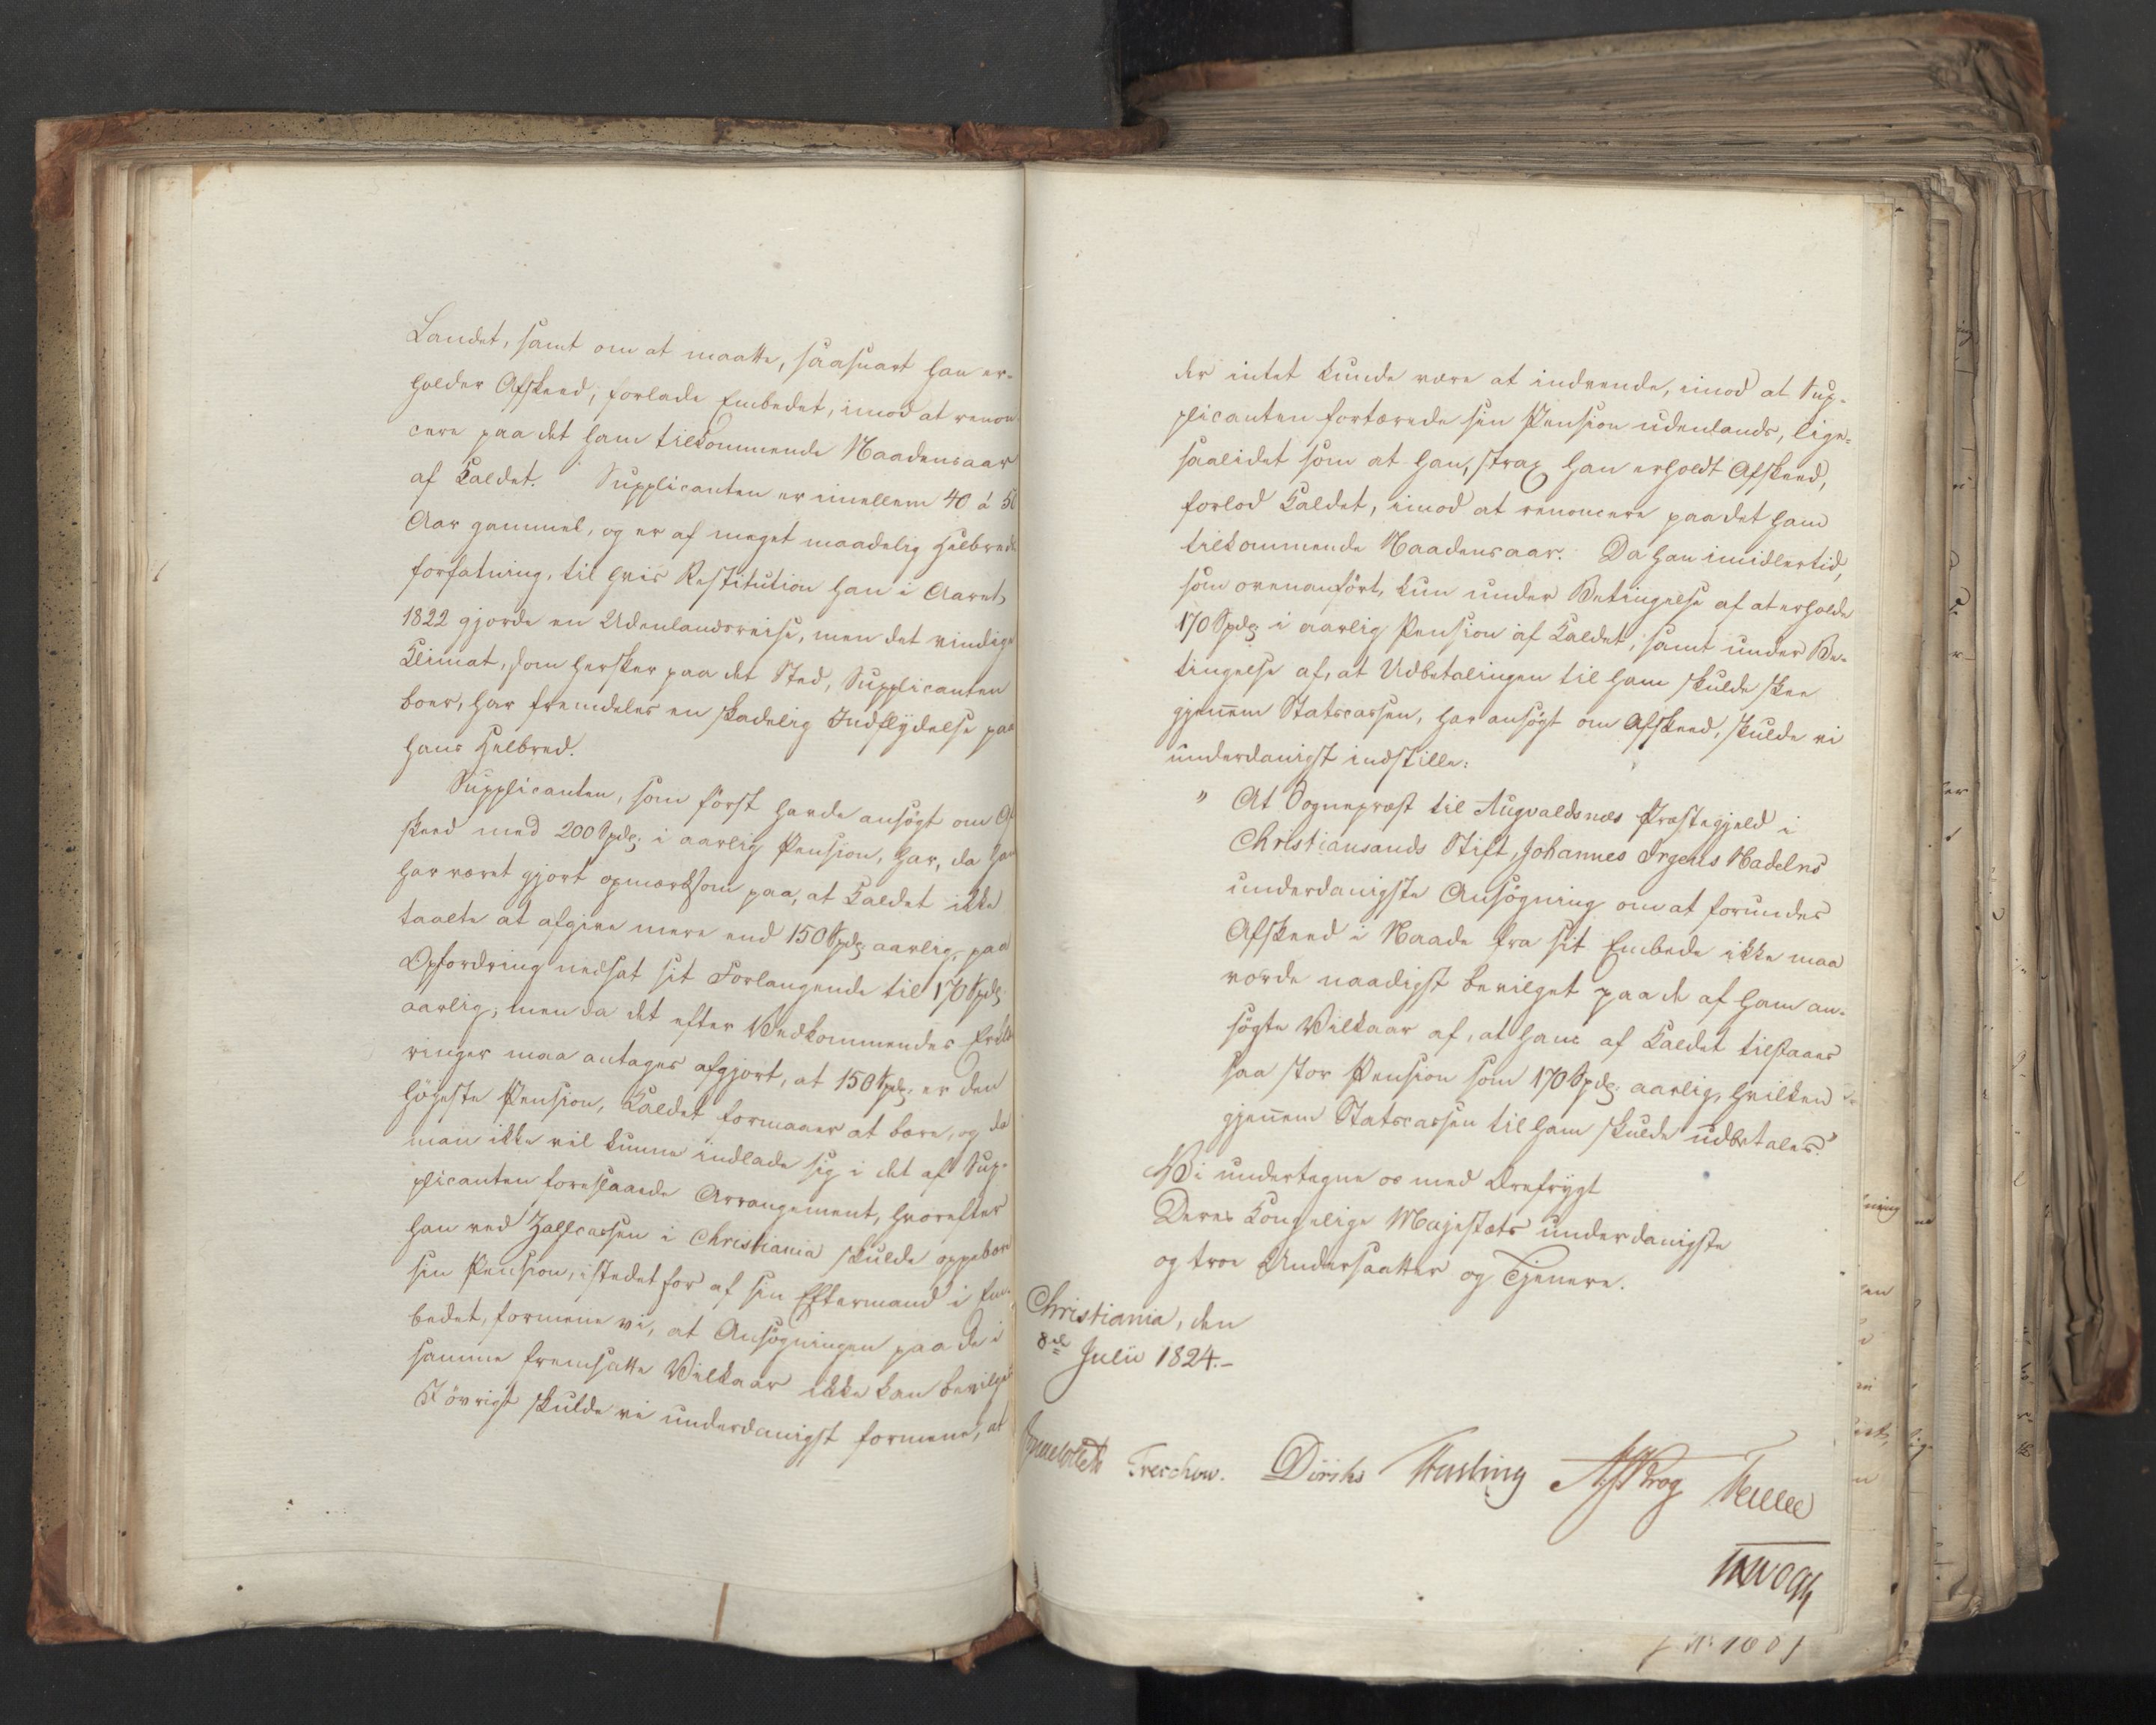 Landet, samt om at maatte, saasnart han er-
holder Afskeed, forlade Embedet, imod at renon
cere paa det ham tilkommende Naadensaar
af Kaldet. Supplicanten er imellem 40 á 50
Aar gammel, og er af meget maadelig Helbreds
forfatning, til hvis Restitution han i Aaret
1822 gjorde en Udenlandsreise, men det vindige
Climat, som hersker paa det Sted, Supplicanten
boer, har fremdeles en skadelig Indflydelse paa
hans Helbred.
Supplicanten, som först havde ansögt om Af
skeed med 200 Spdlr. i aarlig Pension, har, da han
har været gjort opmærksom paa, at Kaldet ikke
taalte at afgive mere end 150 Spdlr. aarlig, paa
Opfordring nedsat sit Forlangende til 170 Spdlr.
aarlig; men da det efter Vedkommendes Erklæ
ringer maa antages afgjort, at 150 Spdlr. er den
höieste Pension, Kaldet formaaer at bære, og da
man ikke vil kunne indlade sig i det af Sup-
plicanten foreslaaede Arrangement, hvorefter
han ved Zahlcassen i Christiania skulde oppebære
sin Pension, istedet for af sin Eftermand i Em-
bedet, formene vi, at Ansögningen paa de i
samme fremsatte Vilkaar ikke kan bevilges
I övrigt skulde vi underdanigst formene, at
der intet kunde være at indvende, imod at Sup-
plicanten fortærede sin Pension udenlands, lige-
saalidet som at han, strax han erholdt Afskeed,
forlod Kaldet, imod at renoncere paa det ham
tilkommende Naadensaar. Da han imidlertid,
som ovenanfört, kun under Betingelse af at erholde
170 Spdlr. i aarlig Pension af Kaldet, samt under Be-
tingelse af, at Udbetalingen til ham skulde skee
gjennem Statscassen, har ansögt om Afskeed, skulde vi
underdanigst indstille:
" At Sognepræst til Augvaldsnæs Præstegjeld i
Christiansands Stift, Johannes Irgens Hadelns
underdanigste Ansögning om at forundes
Afskeed i Naade fra sit Embede ikke maa
vorde naadigst bevilget paa de af ham an-
sögte Vilkaar af, at ham af Kaldet tilstaaes
saa stor Pension som 170 Spdlr. aarlig, hvilken
gjennem Statscassen til ham skulde udbetales."
Vi undertegne os med Ærefrygt
Deres Kongelige Majestæts underdanigste
og troe Undersaatter og Tjenere.
Christiania, den
8de Julii 1824.-
Treschow. Diriks Fasting